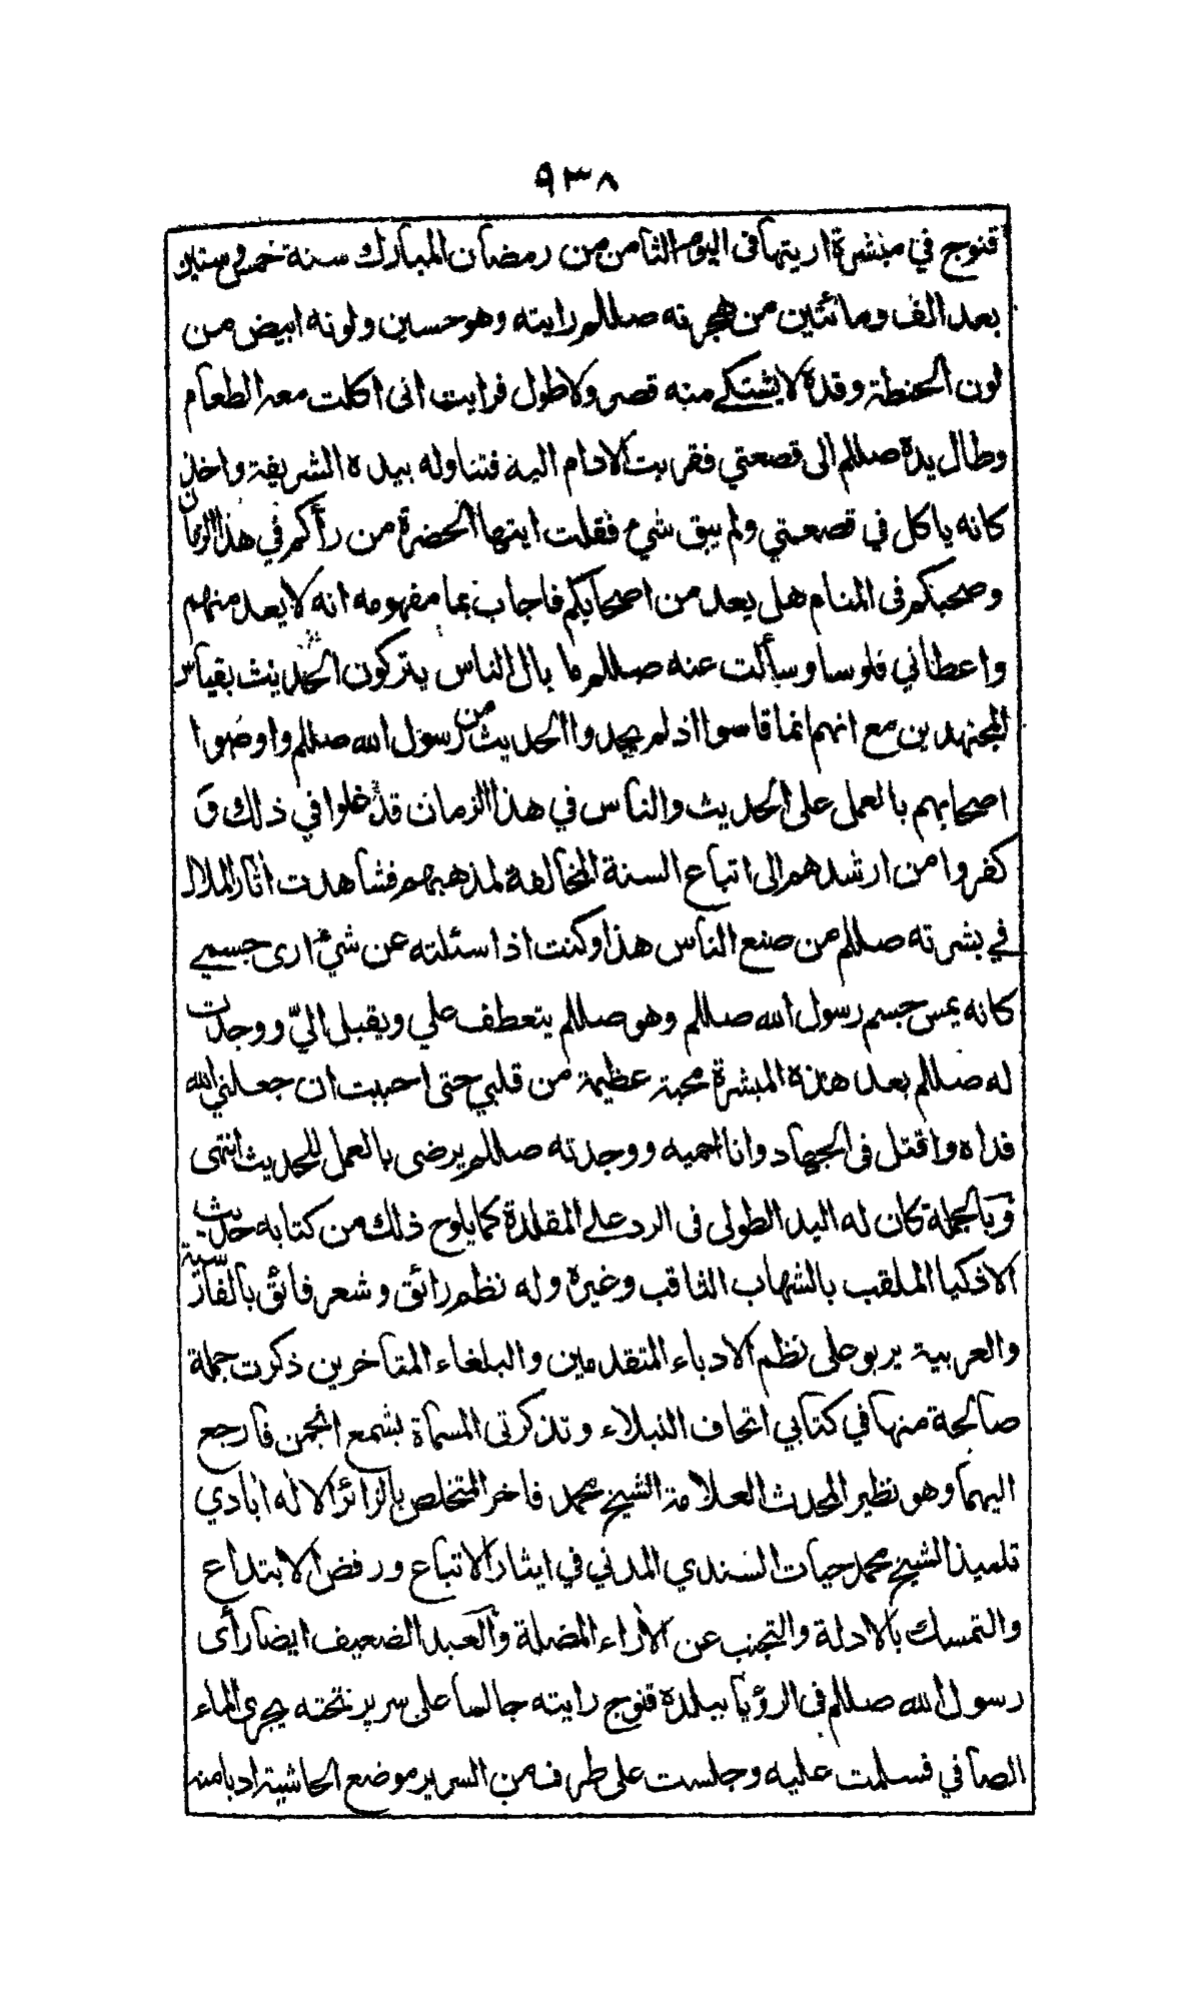 ٩٣٨
قنوج في مبشرة اريتها فى اليوم الثامن من رمضان المبارك سنة خمس وستين
بعد الف ومائتين من هجرته صللم رايته وهو حسين ولونه ابيض من
لون الحنطة وقده لا يشتكے منه قصر ولا طول فرايت انى اكلت معه الطعام
وطال يده صللم الى قصعتي فقربت الادام اليه فتناوله بيده الشريفة واخذ
كانه ياكل في قصعتي ولم يبق شيء فقلت ايتها الحضرة من رأكم في هذا الزمان
وصحبكم فى المنام هل يعد من اصحابكم فاجاب بما مفهومه انه لا يعد منهم
واعطاني فلوسا وسألت عنه صللم ما بال الناس يتركون الحديث بقياس
المجتهدين مع انهم انما قاسوا اذ لم يجدوا الحديث من رسول الله صللم واوصوا
اصحابهم بالعمل على الحديث والناس في هذا الزمان قد خلوا في ذلك و
كفروا من ارشدهم الى اتباع السنة المخالفة لمذهبهم فشاهدت اثار الملال
في بشرته صللم من صنع الناس هذا وكنت اذا سئلته عن شيء ارى جسمے
كانه يمس جسم رسول الله صللم وهو صللم يتعطف علي ويقبل اليّ ووجدت
له صللم بعد هذه المبشرة محبة عظيمة من قلبي حتى احببت ان جعلني الله
فداه واقتل فى الجهاد وانا احميه ووجدته صللم يرضى بالعمل للحديث انتهى
وبالجملة كان له اليد الطولى فى الرد علے المقلدة كما يلوح ذلك من كتابه حديث
الاذكيا الملقب بالشهاب الثاقب وغيره وله نظم رائق وشعر فائق بالفارسية
والعربية يربو على نظم الادباء المتقدمين والبلغاء المتاخرين ذكرت جملة
صالحة منها في كتابي اتحاف النبلاء وتذكرتى المسماة بشمع انجمن فارجع
اليهما وهو نظير المحدث العلامة الشيخ محمد فاخر المتخلص بالزائر الاله ابادي
تلميذ الشيخ محمد حيات السندي المدني في ايثار الاتباع ورفض الابتداع
والتمسك بالادلة والتجنب عن الاراء المضلة والعبد الضعيف ايضا رأى
رسول الله صللم فى الرؤيا ببلدة قنوج رايته جالسا على سرير تحته يجرى الماء
الصافي فسلمت عليه وجلست على طرف من السرير موضع الحاشية ادبا منه